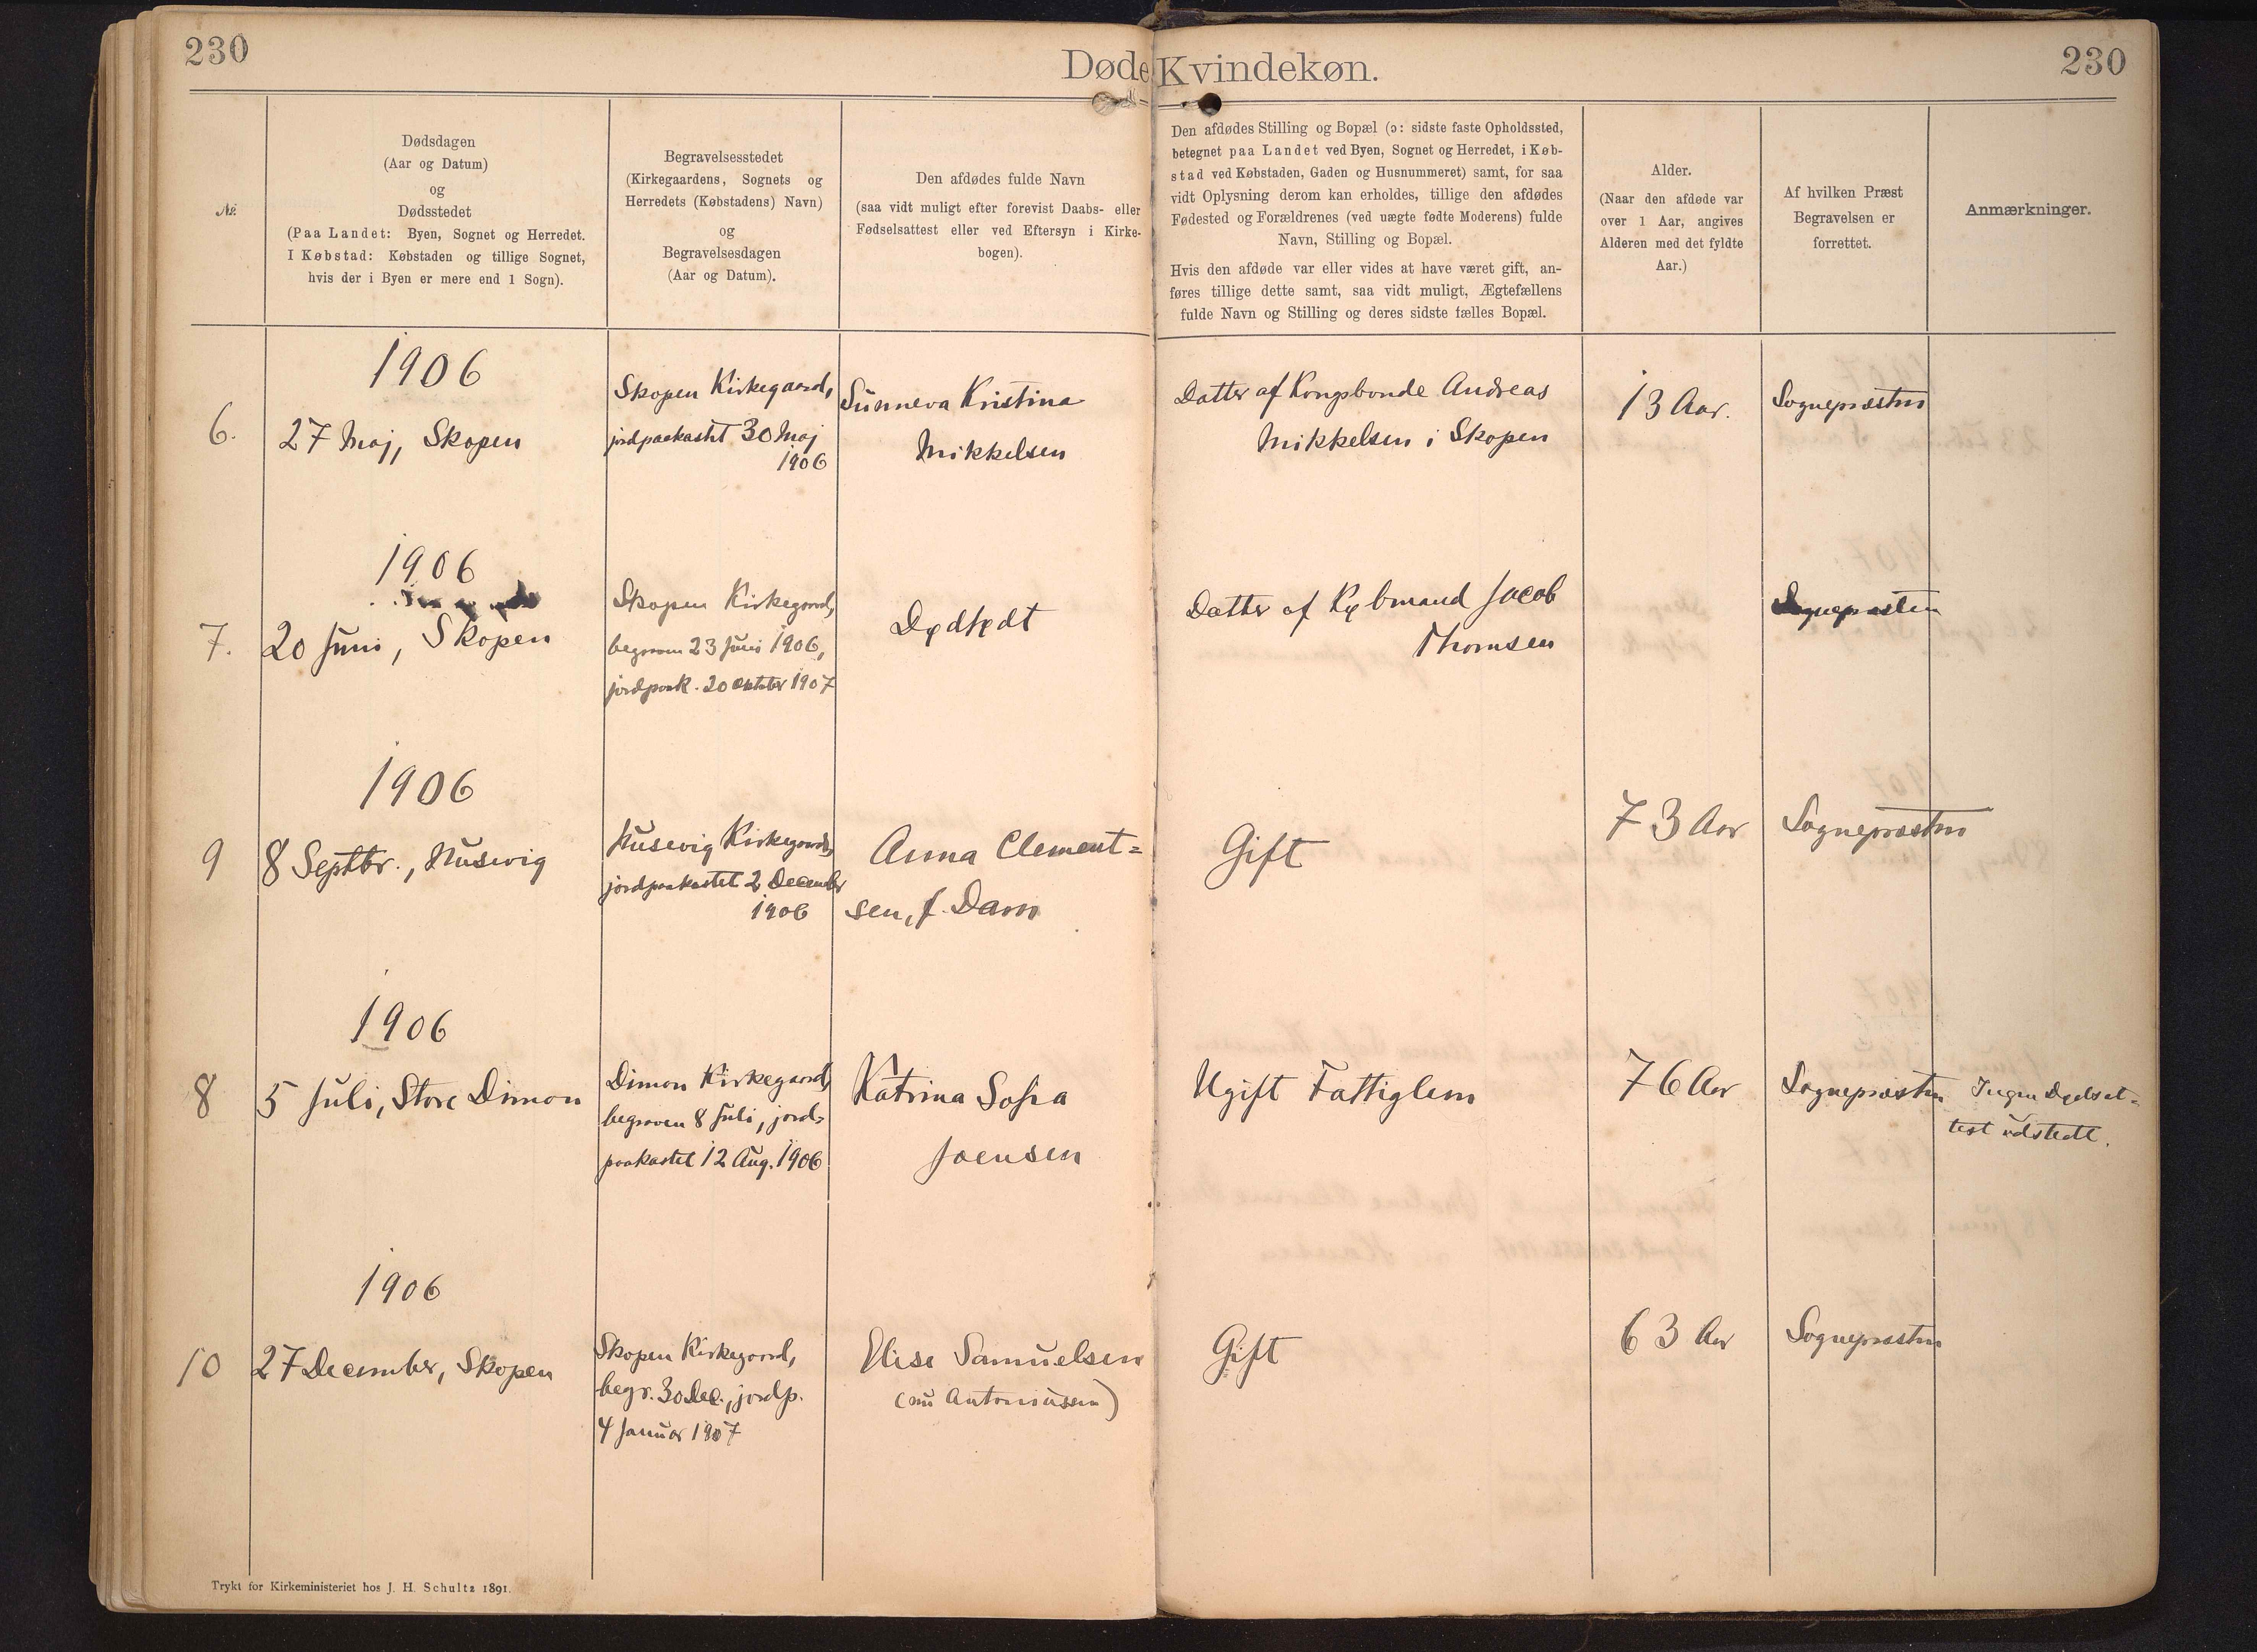 230
Døde Kvindekøn.
230
№.
Dødsdagen
(Aar og Datum)
og
Dødsstedet
(Paa Landet: Byen, Sognet og Herredet.
I Købstad: Købstaden og tillige Sognet,
hvis der i Byen er mere end 1 Sogn).
Begravelsesstedet
(Kirkegaardens, Sognets og
Herredets (Købstadens) Navn)
og
Begravelsesdagen
(Aar og Datum).
Den afdødes fulde Navn
(saa vidt muligt efter forevist Daabs- eller
Fødselsattest eller ved Eftersyn i Kirke-
bogen).
Den afdødes Stilling og Bopæl (ɔ: sidste faste Opholdssted,
betegnet paa Landet ved Byen, Sognet og Herredet, i Køb-
stad ved Købstaden, Gaden og Husnummeret) samt, for saa
vidt Oplysning derom kan erholdes, tillige den afdødes
Fødested og Forældrenes (ved uægte fødte Moderens) fulde
Navn, Stilling og Bopæl.
Hvis den afdøde var eller vides at have været gift, an-
føres tillige dette samt, saa vidt muligt, Ægtefællens
fulde Navn og Stilling og deres sidste fælles Bopæl.
Alder.
(Naar den afdøde var
over 1 Aar, angives
Alderen med det fyldte
Aar.)
Af hvilken Præst
Begravelsen er
forrettet.
Anmærkninger.
6.
1906
27 Maj, Skopen
Skopen Kirkegaard,
jordpaakastet 30 Maj
1906
Sunneva Kristina
Mikkelsen
Datter af Kongsbonde Andreas
Mikkelsen i Skopen
13 Aar.
Sognepræsten
7.
1906
20 Juni, Skopen
Skopen Kirkegaard,
begraven 23 Juni 1906,
jordpaak. 20 Oktober 1907
Dødfødt
Datter af Købmand Jacob
Thomsen
Sognepræsten
9
1906
8 Septbr., Husevig
Husevig Kirkegaard,
jordpaakastet 2 December
1906
Anna Clement=
sen, f. Dam
Gift
73 Aar
Sognepræsten
8
1906
5 Juli, Store Dimon
Dimon Kirkegaard,
begraven 8 Juli, jord-
paakastet 12 Aug. 1906
Katrina Sofia
Joensen
Ugift Fattiglem
76 Aar
Sognepræsten
Ingen Dødsat=
test udstedt.
10
1906
27 December, Skopen
Skopen Kirkegaard,
begr. 30 Dec., jordp.
4 Januar 1907
Elise Samuelsen
(nu Antoniussen)
Gift
63 Aar
Sognepræsten
Trykt for Kirkeministeriet hos J. H. Schultz 1891.